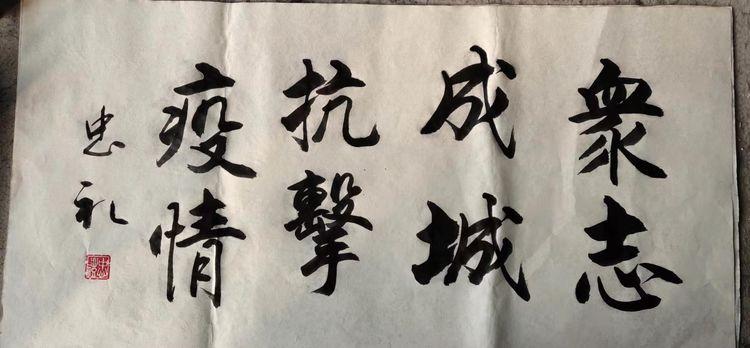 衆志
成城
抗擊
疫情
忠礼